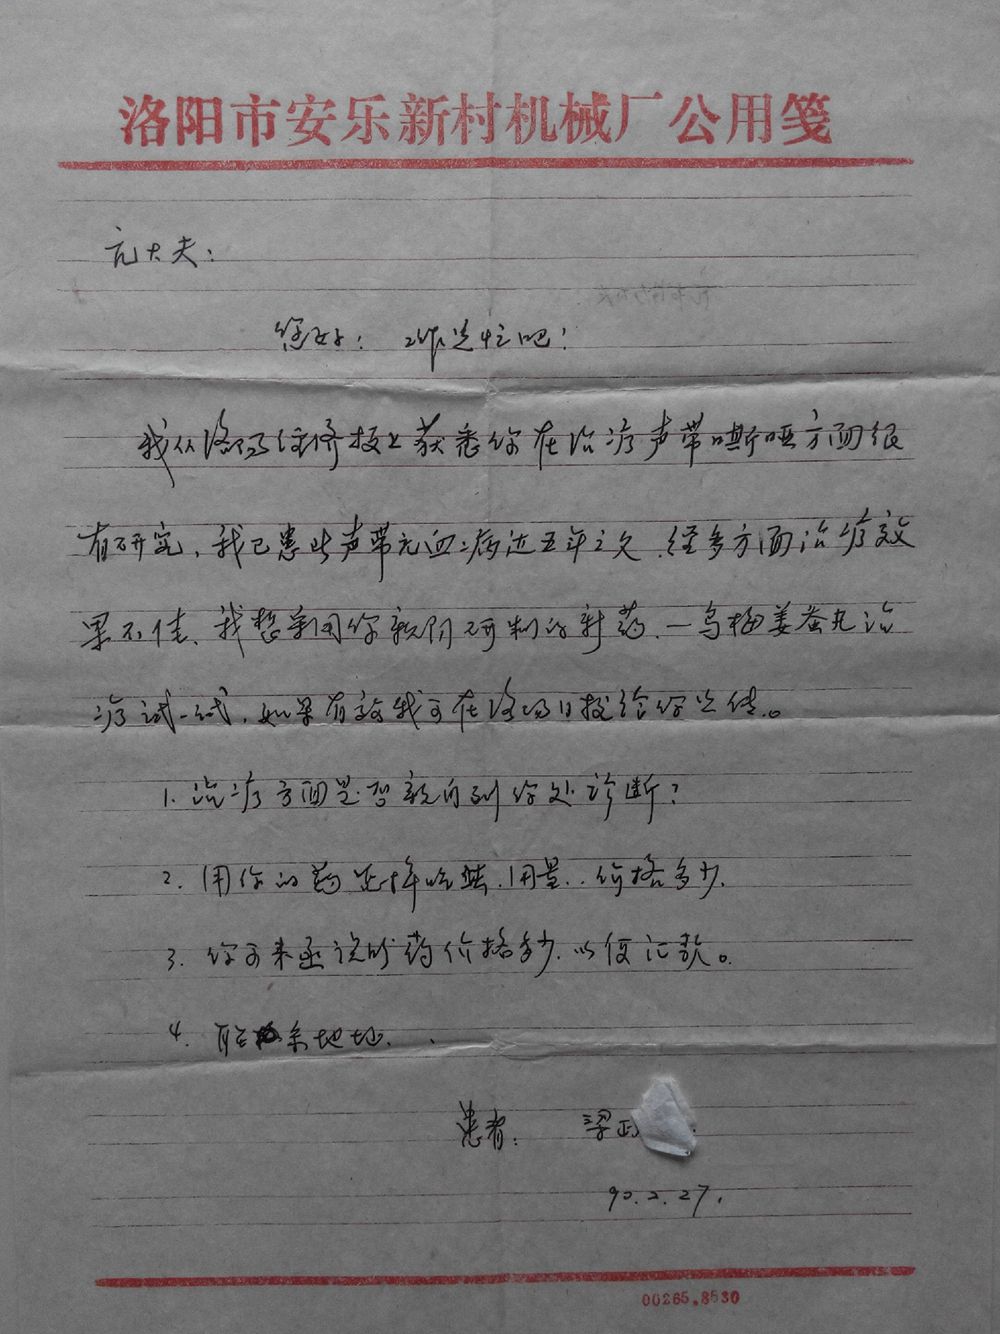 洛阳市安乐新村机械厂公用笺
亢大夫：
您好！工作迖忙吧！
我从洛阳经济报上获悉你在治疗声带嘶哑方面很
有研究，我已患此声带充血病近五年之久，经多方面治疗效
果不佳、我想采用你新研制的新药，一乌梅姜蚕丸治
疗试一试，如果有效我可在洛阳日报给你宣传。
1. 治疗方面是否亲自到你处诊断？
2. 用你的药怎样吃法，用量..价格多少.
3. 你可来函说明药价格多少，以便汇款。
4. 联系地址..
患者： 梁正
90.2.27.
00265.8530